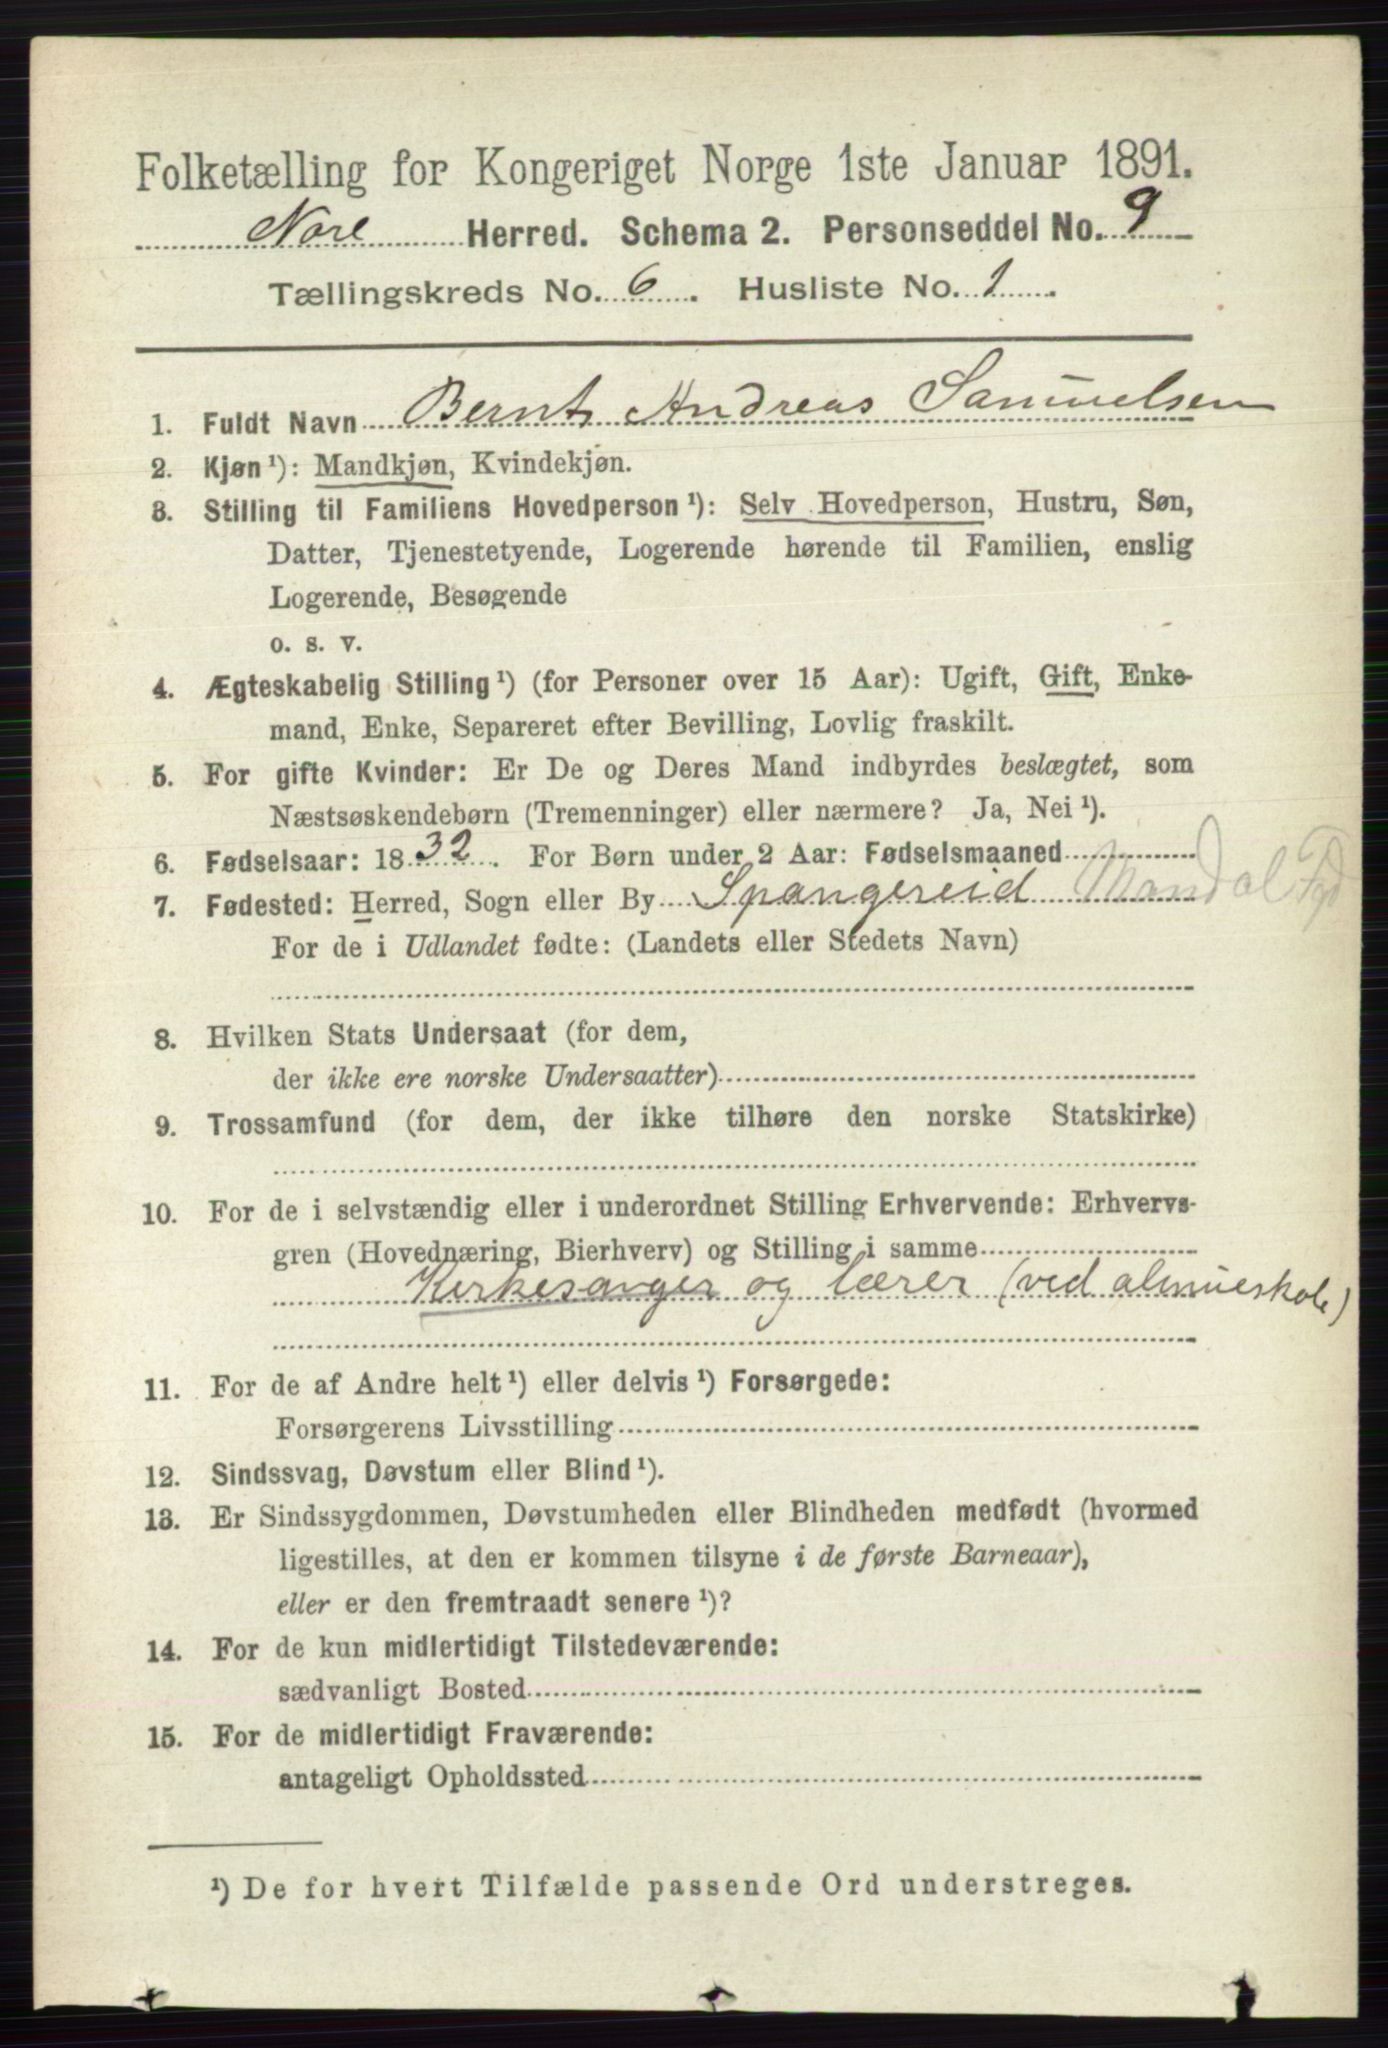 Folketælling for Kongeriget Norge 1ste Januar 1891.
Nore Herred. Schema 2. Personseddel No. 9
Tællingskreds No. 6. Husliste No. 1.
1. Fuldt Navn Bernt Andreas Samuelsen
2. Kjøn ¹): Mandkjøn, Kvindekjøn.
3. Stilling til Familiens Hovedperson ¹): Selv Hovedperson, Hustru, Søn,
Datter, Tjenestetyende, Logerende hørende til Familien, enslig
Logerende, Besøgende
o. s. v.
4. Ægteskabelig Stilling ¹) (for Personer over 15 Aar): Ugift, Gift, Enke-
mand, Enke, Separeret efter Bevilling, Lovlig fraskilt.
5. For gifte Kvinder: Er De og Deres Mand indbyrdes beslægtet, som
Næstsøskendebørn (Tremenninger) eller nærmere? Ja, Nei ¹).
6. Fødselsaar: 1832. For Børn under 2 Aar: Fødselsmaaned
7. Fødested: Herred, Sogn eller By Spangereid Mandal
For de i Udlandet fødte: (Landets eller Stedets Navn)
8. Hvilken Stats Undersaat (for dem,
der ikke ere norske Undersaatter)
9. Trossamfund (for dem, der ikke tilhøre den norske Statskirke)
10. For de i selvstændig eller i underordnet Stilling Erhvervende: Erhvervs-
gren (Hovednæring, Bierhverv) og Stilling i samme
Kirkesanger og lærer (ved almueskole)
11. For de af Andre helt ¹) eller delvis ¹) Forsørgede:
Forsørgerens Livsstilling
12. Sindssvag, Døvstum eller Blind ¹).
13. Er Sindssygdommen, Døvstumheden eller Blindheden medfødt (hvormed
ligestilles, at den er kommen tilsyne i de første Barneaar),
eller er den fremtraadt senere ¹)?
14. For de kun midlertidigt Tilstedeværende:
sædvanligt Bosted
15. For de midlertidigt Fraværende:
antageligt Opholdssted
¹) De for hvert Tilfælde passende Ord understreges.